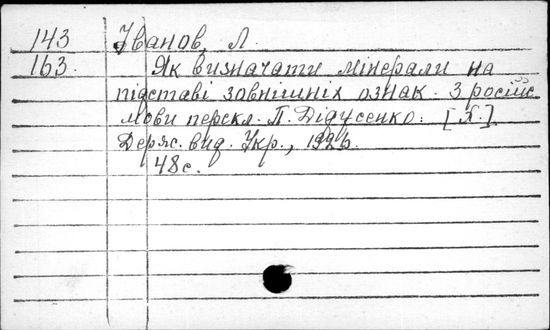 143 Іванов, Л.
163. Як визначати мінерали на
підставі зовнішніх ознак. З російс.
мови перекл. П. Дідусенко. [Х.]
Держ. вид. Укр., 1925.
48 с.